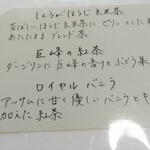 しょうがほうじ玄米茶
香ばしいほうじ玄米茶に ピリッとしし
あたたまる ブレンド茶
巨峰の紅茶
ダージリンに巨峰の香りとぶどう果
ロイヤル バニラ
アッサムに甘く優しいバニラとキ
加えた 紅茶